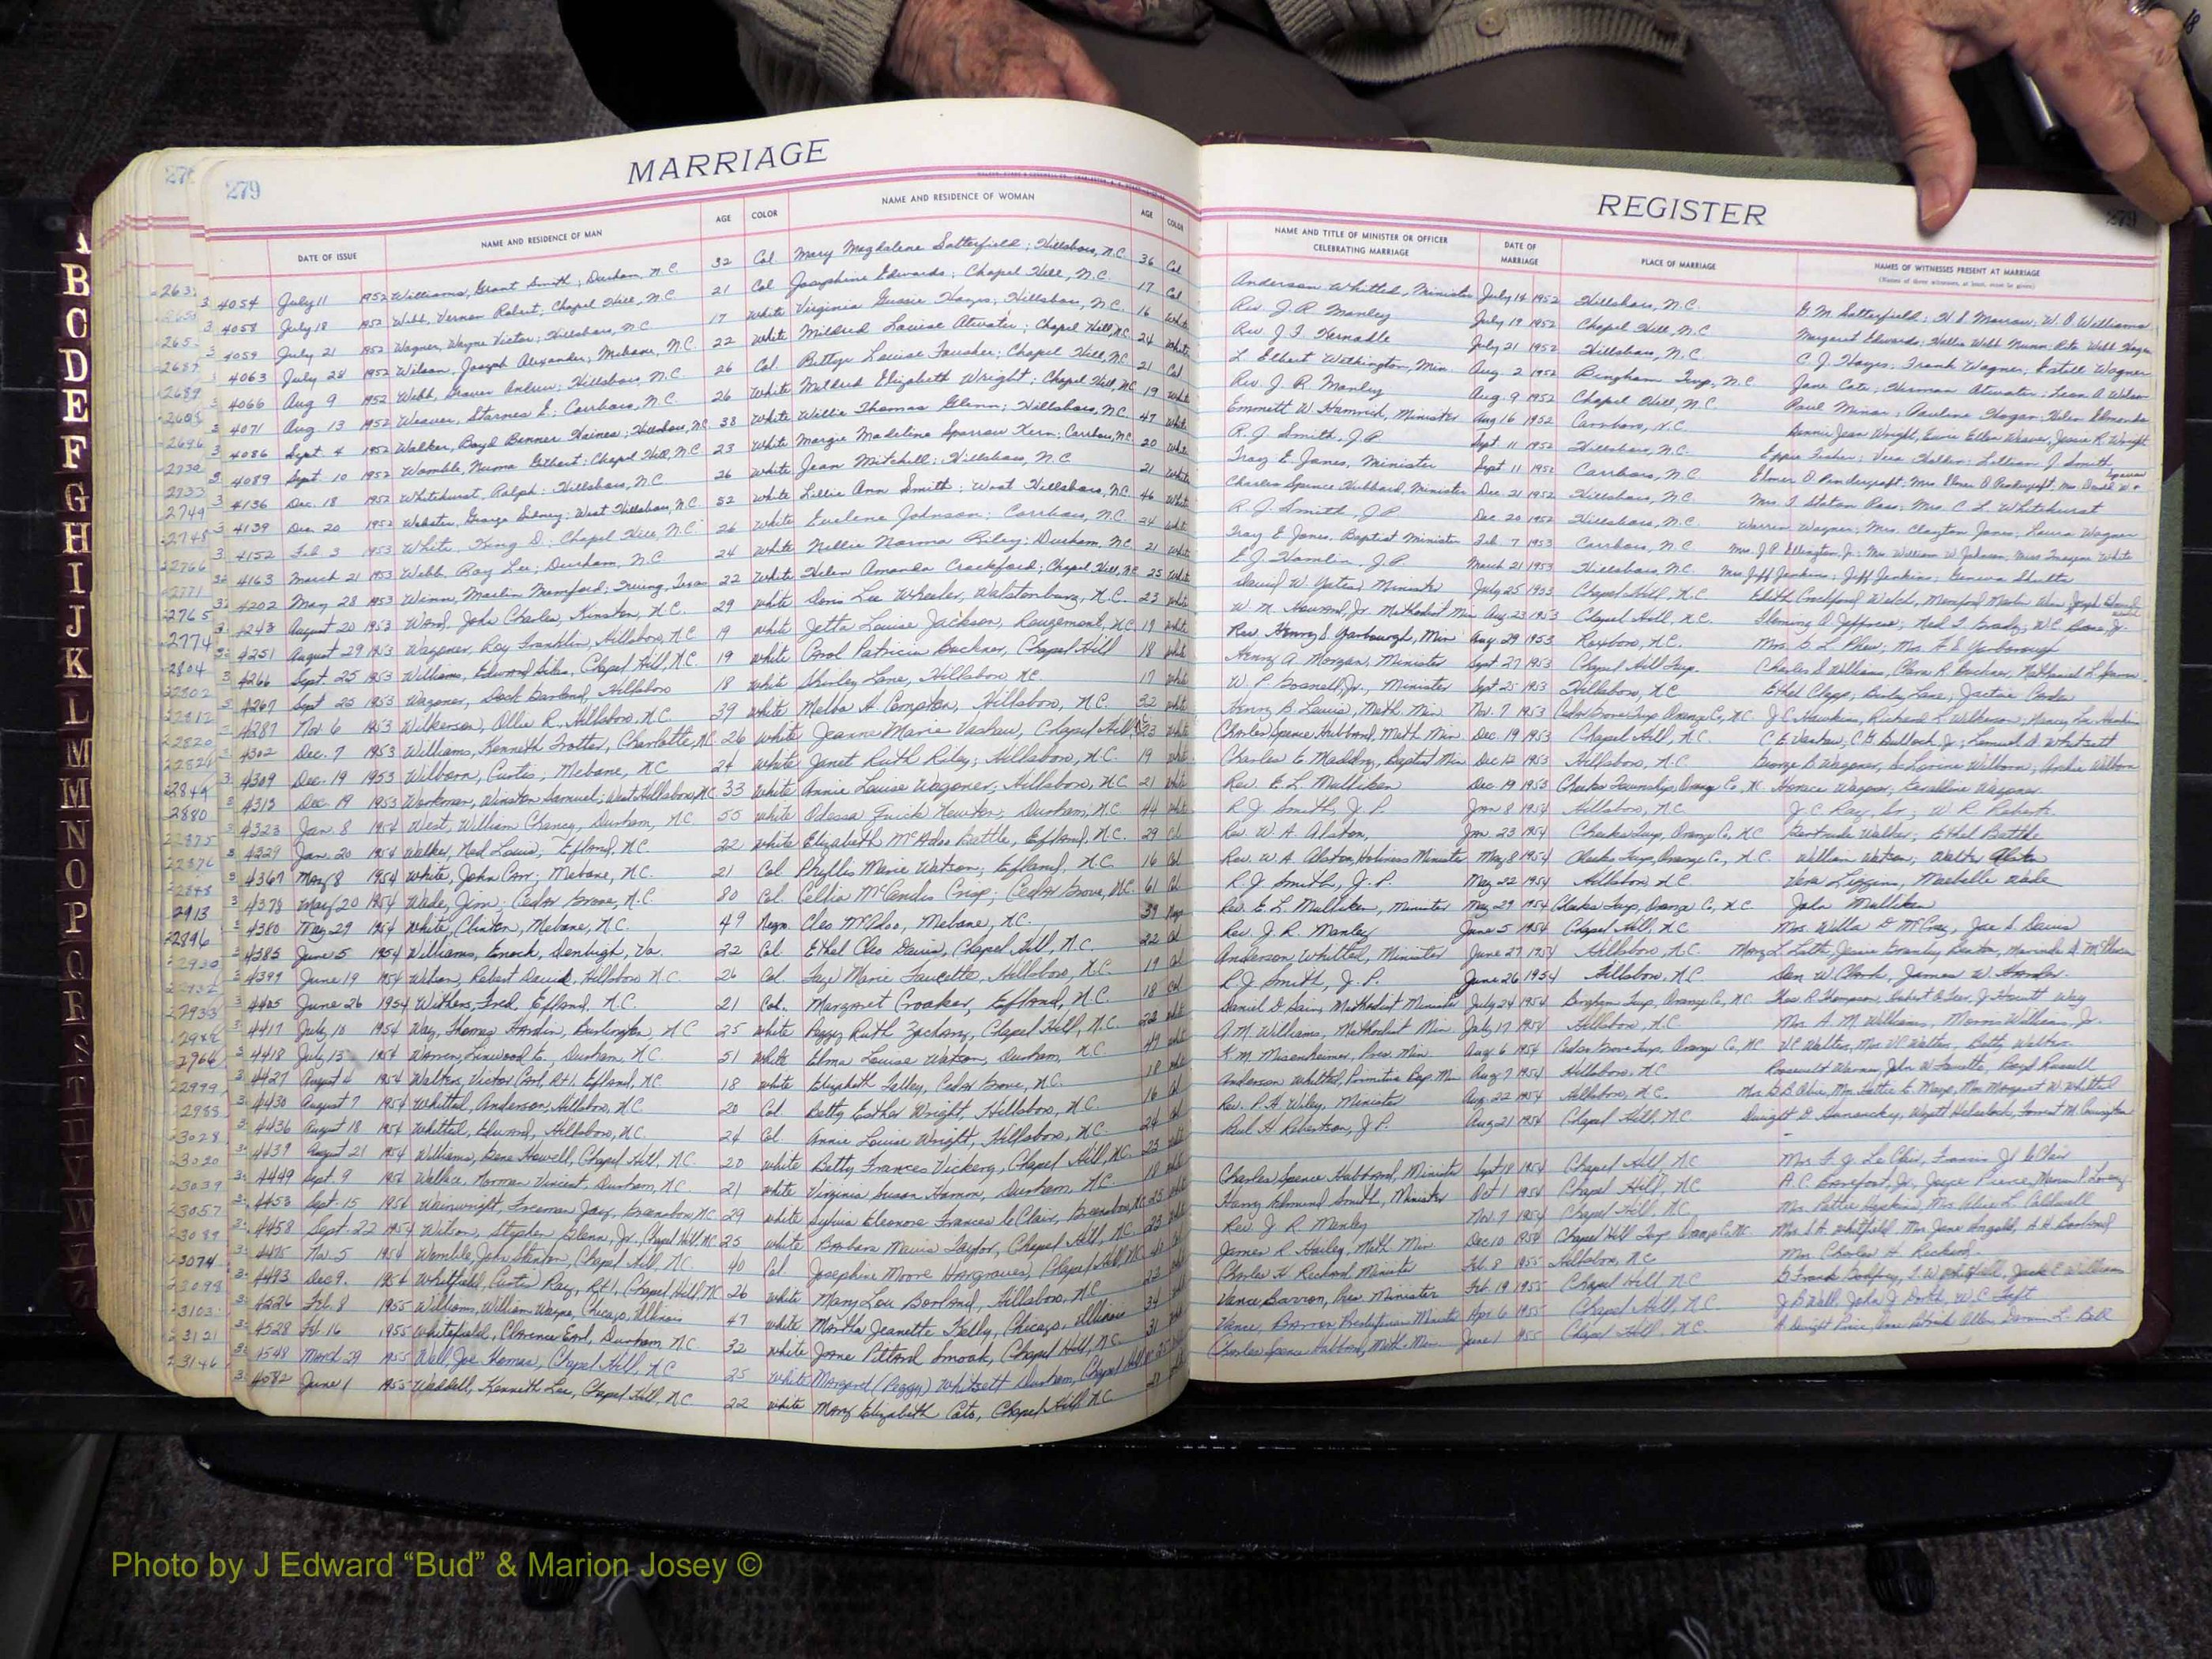 MARRIAGE
279
NAME AND RESIDENCE OF WOMAN
AGE
COLOR
AGE
COLOR
NAME AND RESIDENCE OF MAN
DATE OF ISSUE
4054 July 11 1952 Williams, Grant Smith; Durham N.C. 32 Col Mary Magdalene Satterfield; Hillsboro, N.C. 36 Col
4058 July 18 1952 Webb, Vernon Robert; Chapel Hill, N.C. 21 Col Josephine Edwards; Chapel Hill, N.C. 17 Col
4059 July 21 1952 Wagner, Wayne Victor; Hillsboro, N.C. 17 White Virginia Gussie Hayes; Hillsboro, N.C. 16 White
4063 July 28 1952 Wilson, Joseph Alexander; Mebane, N.C. 22 White Mildred Louise Atwater; Chapel Hill N.C. 24 White
4066 Aug 9 1952 Webb, Grover Andrew; Hillsboro, N.C. 26 Col. Bettye Louise Foushee; Chapel Hill, N.C. 21 Col
4071 Aug 13 1952 Weaver, Starnes E; Carrboro, N.C. 26 White Mildred Elizabeth Wright; Chapel Hill, N.C. 19 White
4086 Sept. 4 1952 Walker, Boyd Benner Haines; Hillsboro, N.C. 38 White Willie Thomas Glenn; Hillsboro, N.C. 47 White
4089 Sept. 10 1952 Womble, Numa Gilbert; Chapel Hill, N.C. 23 White Margie Madeline Sparrow Kern; Carrboro, N.C. 20 White
4136 Dec. 18 1952 Whitehurst, Ralph; Hillsboro, N.C. 26 White Jean Mitchell; Hillsboro, N.C. 21 White
4139 Dec. 20 1952 Webster, George Sidney; West Hillsboro, N.C. 52 White Lillie Ann Smith; West Hillsboro, N.C. 46 White
4152 Feb 3 1953 White, King D; Chapel Hill, N.C. 26 White Evelene Johnson; Carrboro, N.C. 24 White
4163 March 21 1953 Webb, Roy Lee; Durham, N.C. 24 White Nellie Norma Riley; Durham, N.C. 21 White
4202 May 28 1953 Winn, Marlin Mumford; Irving, Texas 22 White Helen Amanda Crockford; Chapel Hill, N.C. 25 White
4243 August 20 1953 Ward, John Charles, Kinston, N.C. 29 white Doris Lee Wheeler, Walstonburg, N.C. 23 white
4251 August 29 1953 Wagoner, Roy Franklin, Hillsboro, N.C. 19 white Jetta Louise Jackson, Rougemont, N.C. 19 white
4266 Sept. 25 1953 Williams, Edward Giles, Chapel Hill, N.C. 19 white Carol Patricia Buckner, Chapel Hill 18 white
4267 Sept 25 1953 Wagoner, Dock Garland, Hillsboro 18 white Shirley Lane, Hillsboro N.C. 17 white
4287 Nov 6 1953 Wilkerson, Ollie R., Hillsboro, N.C. 39 white Melba A Compton, Hillsboro, N.C. 32 white
4302 Dec. 7 1953 Williams, Kenneth Trotter, Charlotte, N.C. 26 white Jeanne Marie Vashaw, Chapel Hill N.C. 23 white
4309 Dec. 19 1953 Wilborn, Curtis; Mebane, N.C. 24 white Janet Ruth Riley; Hillsboro, N.C. 19
4313 Dec. 19 1953 Workman, Winston Samuel; West Hillsboro, N.C. 33 White Annie Louise Wagoner, Hillsboro, N.C. 21 white
4323 Jan. 8 1954 West, William Chancy, Durham, N.C. 55 white Odessa Frick Newton, Durham, N.C. 44 white
4329 Jan. 20 1954 Walker, Ned Louis; Efland, N.C. 22 white Elizabeth McAdoo Battle, Efland, N.C. 29 Col
4367 May 8 1954 White, John Carr; Mebane, N.C. 21 Col Phyllis Marie Watson; Efland, N.C. 16 Col
4378 May 20 1954 Wade, Jim; Cedar Grove, N.C. 80 Col. Cellia McCandis Crisp; Cedar Grove, N.C. 61 Col
4380 May 29 1954 White, Clinton, Mebane, N.C. 49 Negro Cleo McAdoo, Mebane, N.C. 39 Negro
4385 June 5 1954 Williams, Enock, Denbigh, Va. 22 Col. Ethel Cleo Davis, Chapel Hill, N.C. 22 Col
4399 June 19 1954 Watson, Robert David, Hillsboro N.C. 26 Col. Faye Marie Faucette, Hillsboro, N.C. 19 Col
4405 June 26 1954 Withers, Fred, Efland, N.C. 21 Col. Margaret Croaker, Efland, N.C. 18 Col
4417 July 10 1954 Way, Thomas Hardin, Burlington, N.C. 25 white Peggy Ruth Zachary, Chapel Hill, N.C. 22 white
4418 July 13 1954 Warren, Linwood E., Durham, N.C. 51 white Elma Louise Watson, Durham, N.C. 49 white
4427 August 4 1954 Walters, Victor Carl, Rt 1 Efland, N.C. 18 white Elizabeth Lalley, Cedar Grove, N.C. 18 white
4430 August 7 1954 Whitted, Anderson, Hillsboro, N.C. 20 Col. Betty Esther Wright, Hillsboro, N.C. 16 Col
4436 August 18 1954 Whitted, Edward, Hillsboro, N.C. 24 Col. Annie Louise Wright, Hillsboro, N.C. 24
4439 August 21 1954 Williams, Gene Howell, Chapel Hill, N.C. 20 white Betty Frances Vickery, Chapel Hill, N.C. 23 white
4449 Sept. 9 1954 Wallace, Norman Vincent, Durham, N.C. 21 white Virginia Susan Hamm, Durham, N.C. 18 white
4453 Sept. 15 1954 Wainwright, Freeman Jay, Greensboro, N.C. 29 white Sylvia Eleonore Frances LeClair, Greensboro, N.C. 25 white
4458 Sept. 22 1954 Wilson, Stephen Glenn, Jr., Chapel Hill, N.C. 25 white Barbara Mavis Taylor, Chapel Hill, N.C. 23
4475 Nov. 5 1954 Womble, John Stanton, Chapel Hill, N.C. 40 Col Josephine Moore Hargraves, Chapel Hill N.C.
4493 Dec 9. 1954 Whitfield, Curtis Ray, Rt 1, Chapel Hill, N.C. 26 white Mary Lou Borland, Hillsboro, N.C. 22
4526 Feb. 8 1955 Williams, William Wayne, Chicago, Illinois 47 white Martha Jeanette Kelly, Chicago, Illinois 34
4528 Feb. 16 1955 Whitefield, Clarence Earl, Durham N.C. 32 white Jane Pittard Smoak, Chapel Hill, N.C. 31
4548 March 29 1955 Wall, Joe Thomas, Chapel Hill, N.C. 25 white Margaret (Peggy) Whitsett Durham, Chapel Hill
4582 June 1 1955 Waddell, Kenneth Lee, Chapel Hill, N.C. 22 white Mary Elizabeth Cate, Chapel Hill N.C.
REGISTER
279
NAME AND TITLE OF MINISTER OR OFFICER
CELEBRATING MARRIAGE
DATE OF
MARRIAGE
PLACE OF MARRIAGE
NAMES OF WITNESSES PRESENT AT MARRIAGE
(Names of three witnesses, at least, must be given)
Anderson Whitted, Minister July 14 1952 Hillsboro, N.C. G. M. Satterfield; H. S. Morrow; W. O. Williams
Rev. J. R. Manley July 19 1952 Chapel Hill, N.C. Margaret Edwards; Nellie Webb Nunn; Rita Webb
Rev J. F. Hernable July 21 1952 Hillsboro, N.C. C. J. Hayes; Frank Wagner; Estell Wagner
L. Elbert Wethington, Min. Aug. 2 1952 Bingham Twp., N.C. Jane Cate; Herman Atwater; Leon A Wilson
Rev. J. R. Manley Aug. 9 1952 Chapel Hill, N.C. Paul Minor; Pauline Hogan; Helen Edwards
Emmett W. Hamrick, Minister Aug 16 1952 Carrboro, N.C. Bennie Jean Wright, Ellen Weaver, Jessie R. Wright
R. J. Smith, J.P. Sept. 11 1952 Hillsboro, N.C. Eppie Fisher; Lillian J. Smith
Troy E. Jones, Minister Sept 11 1952 Carrboro, N.C. Elmer O Pendergraft; Mrs. Elmer O Pendergraft; Mrs.
Charles Spence Hubbard, Minister Dec. 21 1952 Hillsboro, N.C. Mrs. J Staton Ross; Mrs. C. L. Whitehurst
R. J. Smith, J.P. Dec 20 1952 Hillsboro, N.C. Warren Wagner; Mrs. Clayton Jones; Laura Wagner
Troy E. Jones, Baptist Minister Feb. 7 1953 Carrboro, N.C. Mrs. J. P. Ellington, Jr.; Mrs. William W. Johnson; Miss Imogene White
E. J. Hamlin, J.P. March 21 1953 Hillsboro, N.C. Mrs. Jeff Jenkins; Jeff Jenkins; Geneva Shults
David W. Yates, Minister July 25 1953 Chapel Hill, N.C. Edith Crockford Welch, Mumford Marlin Winn, Joseph Edwards
W. M. Howard, Jr. Methodist Min Aug. 23 1953 Chapel Hill, N.C. Fleming A Jeffress; Ned T. Brady; W.C.
Rev. Henry S. Yarbourgh, Min Aug 29 1953 Roxboro, N.C. Mrs. G. L. Phew; Mrs. H. S. Yarborough
Henry A. Morgan, Minister Sept. 27 1953 Chapel Hill Twp. Charles S Williams, Clara R. Buckner, Nathaniel L.
W. P. Gosnell, Jr., Minister Sept. 25 1953 Hillsboro, N.C. Ethel Clapp, Lane; Jackie Cook
Henry B. Lewis, Meth. Min Nov. 7 1953 Cedar Grove Twp. Orange Co., N.C. J. C. Hawkins, Richard L. Wilkerson, Nancy Lee Hawkins
Charles Spence Hubbard, Meth. Min Dec. 19 1953 Chapel Hill, N.C. C E Vashaw; C G Bullock, Jr.; Lemuel D. Whitsett
Charles E. Maddry, Baptist Min Dec 12 1953 Hillsboro, N.C. George B. Wagoner, Lurine Wilborn; Archie Wilborn
Rev. E. L. Milliken Dec. 19 1953 Cheeks Township, Orange Co., N.C. Horace Wagoner; Geraldine Wagoner
R. J. Smith, J.P. Jan 8 1954 Hillsboro, N.C. J. C. Ray, Sr.; W. R. Roberts
Rev. W. A. Alston, Jan. 23 1954 Cheeks Twp, Orange Co, N.C. Gertrude Walker; Ethel Battle
Rev. W. A. Alston, Holiness Minister May 8 1954 Cheeks Twp, Orange Co., N.C. William Watson; Walter Alston
R. J. Smith, J.P. May 22 1954 Hillsboro N.C. Vera Liggins, Maebelle Wade
Rev. E. L. Milliken, Minister May 29 1954 Cheeks Twp, Orange Co, N.C. Jola Milliken
Rev. J. R. Manley June 5 1954 Chapel Hill, N.C. Mrs. Willa D McCray, Joe S. Davis
Anderson Whitted, Minister June 27 1954 Hillsboro, N.C. Mary L. Latta, Jessie Stanley
R. J. Smith, J.P. June 26 1954 Hillsboro, N.C. Ben W. Clark, James W.
Daniel D. Sain, Methodist Minister July 24 1954 Bingham Twp, Orange Co, N.C. Thos R. Thompson, J. Hewitt Way
A. M. Williams, Methodist Min July 17 1954 Hillsboro, N.C. Mrs. A. M. Williams, Morris Williams, Jr.
K. M. Misenheimer, Pres. Min Aug. 6 1954 Cedar Grove Twp, Orange Co, N.C. V C Walters, Mrs. V C Walters, Betty Walters
Anderson Whitted, Primitive Bap. Min Aug 7 1954 Hillsboro, N.C. Roosevelt Warren, John W. Faucette, Boyd Russell
Rev. P. H. Wiley, Minister Aug. 22 1954 Hillsboro, N.C. Mrs. Hattie E. Mayo, Mrs. Margaret W. Whitted
Paul H. Robertson, J.P. Aug 21 1954 Chapel Hill, N.C. Dwight D. Wyatt Forrest M. Covington
Charles Spence Hubbard, Minister Sept 18 1954 Chapel Hill, N.C. Mrs. F. J. Le Clair, Francis J. LeClair
Harry Edmund Smith, Minister Oct 1 1954 Chapel Hill, N.C. A. C. Barefoot, Jr., Joyce Pierce,
Rev. J. R. Manley Nov. 7 1954 Chapel Hill, N.C. Mrs. Pattie Hopkins, Mrs. Alice L. Caldwell
James R. Hailey, Meth. Min Dec 10 1954 Chapel Hill Twp. Orange Co NC Mrs. S. A. Whitfield, Mrs. Jane A. H. Borland
Charles H. Reckard Minister Feb. 8 1955 Hillsboro, N.C. Mrs. Charles H. Reckard
Vance Barron, Pres. Minister Feb. 19 1955 Chapel Hill, N.C. G. Frank Godfrey, Whitfield, Jack C. Williams
Vance Barron Presbyterian Minister Apr. 6 1955 Chapel Hill, N.C. J. B. Wall, John J.
Charles Spence Hubbard, Meth. Min June 1 1955 Chapel Hill, N.C. A. Dwight Price,
B
C
D
E
F
G
H
I
J
K
L
M
M
N
O
P
Q
R
S
T
U
V
W
Photo by J Edward “Bud” & Marion Josey ©